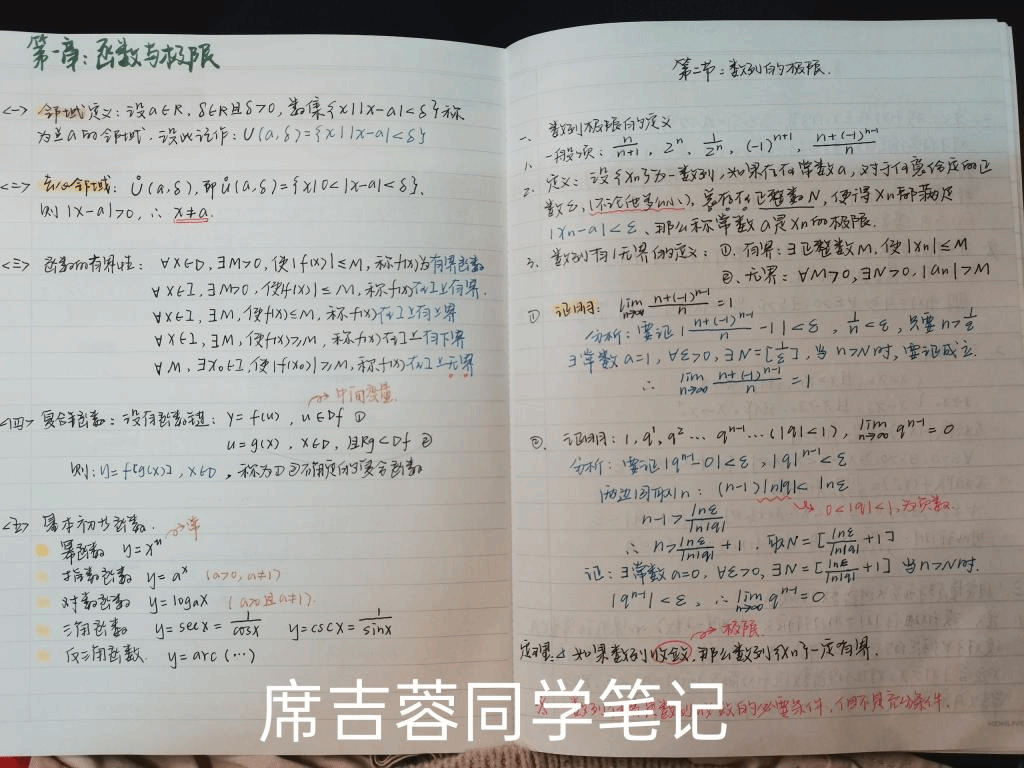 第一章：函数与极限
<一> 邻域定义：设a∈R，δ∈R且δ>0，数集{x||x-a|<δ}称
为点a的邻域，设此记作：U(a,δ)={x||x-a|<δ}
<二> 去心邻域：Ů(a,δ)，即Ů(a,δ)={x|0<|x-a|<δ}，
则|x-a|>0，∴ x≠a.
<三> 函数的有界性：∀x∈D，∃M>0，使|f(x)|≤M，称f(x)为有界函数
∀x∈I，∃M>0，使|f(x)|≤M，称f(x)在I上有界.
∀x∈I，∃M，使f(x)≤M，称f(x)在I上有上界
∀x∈I，∃M，使f(x)≥M，称f(x)在I上有下界
∀M，∃x₀∈I，使|f(x₀)|>M，称f(x)在I上无界
→中间变量
<四> 复合函数：设有函数链：y=f(u)，u∈Df ①
u=g(x)，x∈D，且Rg⊂Df ②
则：y=f[g(x)]，x∈D，称为①②确定的复合函数
<五> 基本初等函数.
幂函数 y=xⁿ
指数函数 y=aˣ (a>0, a≠1)
对数函数 y=logₐx (a>0且a≠1).
三角函数 y=secx=1/cosx y=cscx=1/sinx
反三角函数. y=arc(…)
第二节：数列的极限.
一、数列极限的定义
1. 一般项：n/(n+1)，2ⁿ，1/2ⁿ，(-1)ⁿ⁺¹，(n+(-1)ⁿ⁻¹)/n
2. 定义：设{xn}为一数列，如果存在常数a，对于任意给定的正
数ε，(不论他多么小)，总存在正整数N，使得xn都满足
|xn-a|<ε，那么称常数a是xn的极限.
3. 数列有|无界的定义：①. 有界：∃正整数M，使|xn|≤M
②. 无界：∀M>0，∃N>0，|an|>M
① 证明：lim n→∞ (n+(-1)ⁿ⁻¹)/n=1
分析：要证|(n+(-1)ⁿ⁻¹)/n-1|<ε，1/n<ε，只要n>1/ε
∃常数a=1，∀ε>0，∃N=[1/ε]，当n>N时，要证成立.
∴ lim n→∞ (n+(-1)ⁿ⁻¹)/n=1
②. 证明：1, q¹, q² … qⁿ⁻¹ … (|q|<1)，lim n→∞ qⁿ⁻¹=0
分析：要证|qⁿ⁻¹-0|<ε，|q|ⁿ⁻¹<ε
两边同取ln：(n-1)ln|q|<lnε
n-1>lnε/ln|q| 0<|q|<1，为负数
∴ n>lnε/ln|q|+1，取N=[lnε/ln|q|+1]
证：∃常数a=0，∀ε>0，∃N=[lnε/ln|q|+1] 当n>N时.
|qⁿ⁻¹|<ε，∴ lim n→∞ qⁿ⁻¹=0
→极限.
定理：如果数列收敛，那么数列{xn}一定有界.
的必要条件，但不是充分条件.
席吉蓉同学笔记